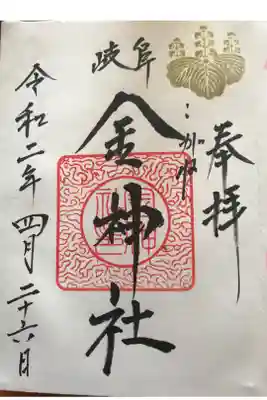 奉拝
岐阜
金神社
令和二年 四月二十六日